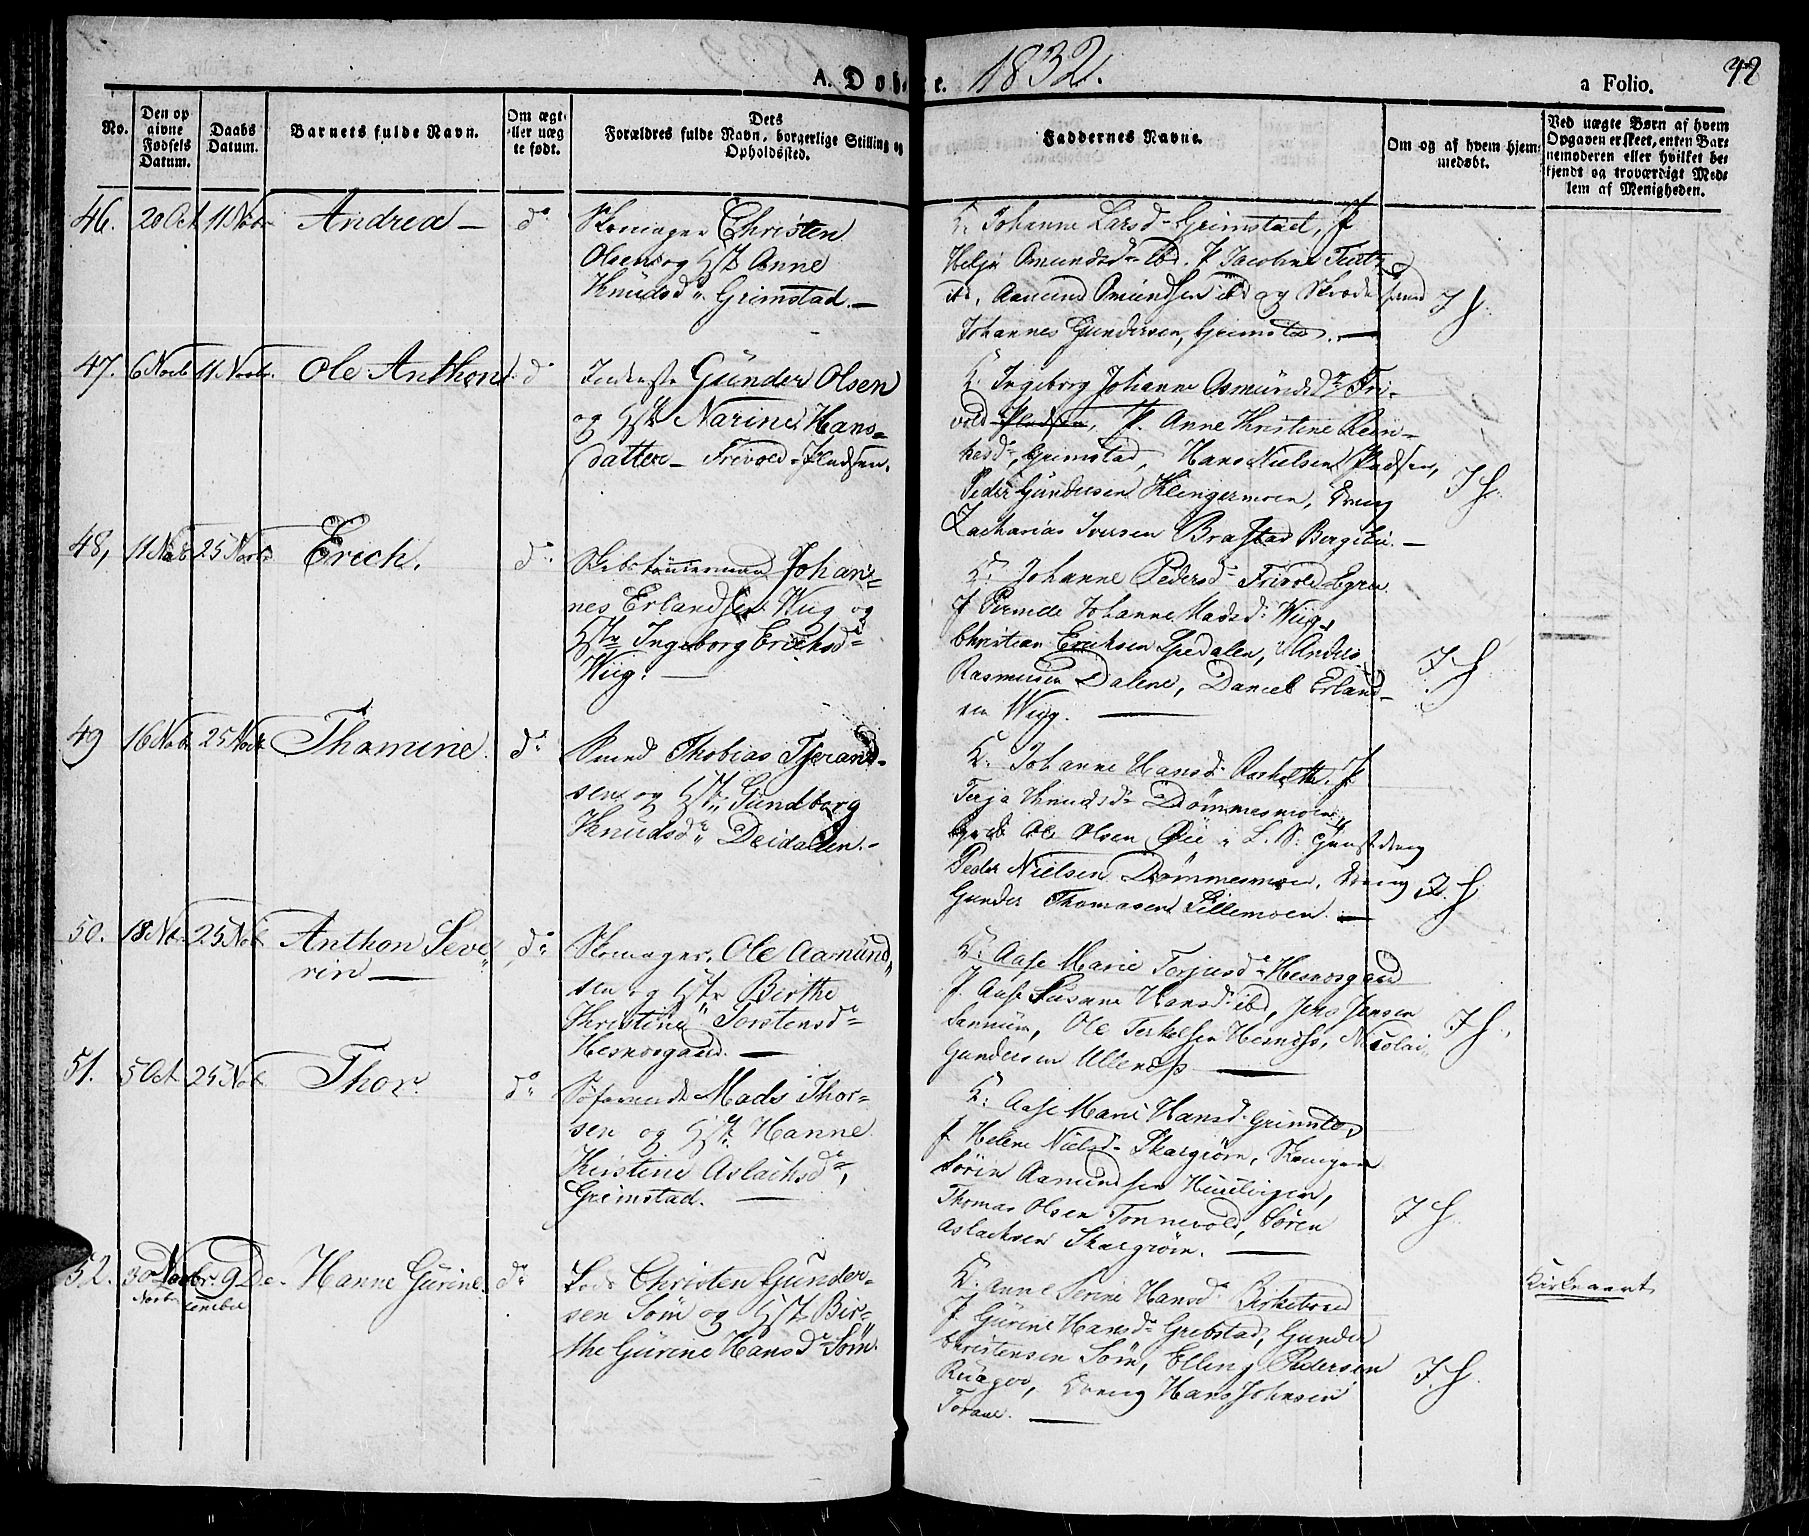 A. Døbte.
1832.
a Folio.
42
No.
Den op
givne
Fødsels
Datum.
Daabs
Datum.
Barnets fulde Navn.
Om ægt-
eller uæg
te født.
Dets
Forældres fulde Navn, borgerlige Stilling og
Opholdssted.
Faddernes Navne.
Om og af hvem hjem-
medøbt.
Ved uægte Børn af hvem
Opgaven er skeet, enten Bar-
nemoderen eller hvilket be-
kjendt og troværdigt Med-
lem af Menigheden.
46. 20 Oct 11 Novbr Andrea — do
Skomager Christen
Olsen og Hst Anne
Knudsdr Grimstad. —
K. Johanne Larsd. Grimstad, P
Helje Osmundsdr ibd. P Jacobine
ibd, Aamund Omundsen ibd og
Johannes Gundersen, Grimstad. —
J H.
47. 6 Novb 11 Novbr. Ole Anthon. do
Inderste Gunder Olsen
og Hst Narine Hans-
datter — Frivold-Pladsen.
K. Ingeborg Johanne Osmundsdr Fri-
vold Pladsen, P. Anne Kristine Rein-
Grimstad, Hans Nielsen Pladsen,
Peder Gundersen Klingermoen, Dreng
Zacharias Iversen Brastad Bergelie. —
J H.
48, 11 Novb 25 Novbr Erich. do
Skibstømmermand Johan-
nes Erlandsen Wiig og
Hstr Ingeborg Erichsdr
Wiig. —
K. Johanne Pedersd. Frivold
P Johanne Madsd. Wiig,
Christian Eriksen Spedalen, Anders
Rasmusen Dalene, Daniel Erland-
sen Wiig. —
J H.
49 16 Nobr 25 Novbr Thomine. do
Smed Thobias Tjerand-
sen og Hst Gundborg
Knudsdr Deidalen. -
K. Johanne Hansd. P
Terja Knudsdr Dømmesmoen
Ole Olsen Øie
Peder Nielsen Dømmesmoen, Dreng
Gunder Thomasen Lillemoen. —
J. H
50. 18 Nov. 25 Nov Anthon Seve-
rin — do
Skomager, Ole Aamund-
sen og Hstr Birthe
Kristine Torstensdr
Hesnesgaard. —
K. Aase Marie Terjusdr Hesnesgaard
P. Aase Susane Hansd. ibd, Jens Jensen
Sannum, Ole Terkelsen Hesnes, Nicolai
Gundersen Ullenes —
J H.
51. 5 Oct 25 Nov Thor. do
Søfarende Mads Thor-
sen og Hst Hanne
Kirstine Aslachsdr,
Grimstad. —
K. Aase Marie Hansd. Grimstad,
P. Helene Nielsd. Skargrøm, Skomager
Søren Aamundsen
Thomas Olsen Tonnevold, Søren
Aslachsen Skargrøm. —
J H.
52. 30 Novbr. 9 De-
Novbr cember
Hanne Gurine. do
Lods Christen Gunder-
sen Søm og Hst Bir-
the Gurine Hansdr Søm.
K. Anne Serine Hansdr Birketved
P Gurine Hansdr Grebstad, Gunder
Christensen Søm, Elling Pedersen
Dreng Hans Johnsen
J. H.